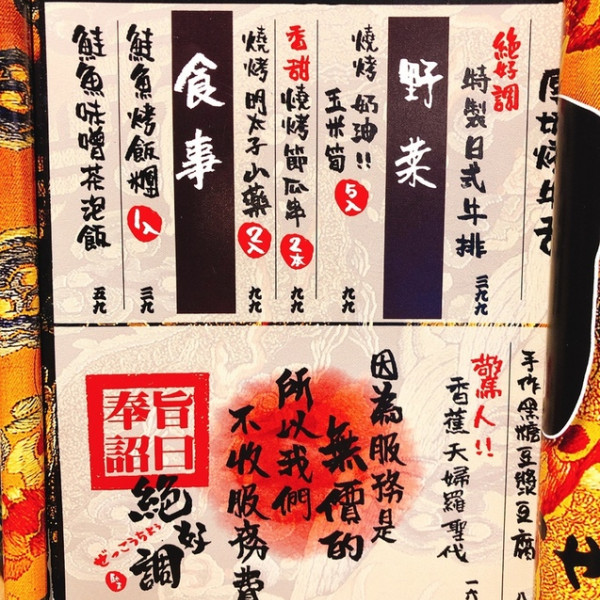 厚切燒牛舌
絕好調
特製日式牛排 三九九
野菜
燒烤 奶油!!
玉米筍 5入 九九
香甜 燒烤節瓜串 2本 九九
燒烤明太子山藥 2入 九九
食事
鮭魚烤飯糰 1入 三九
鮭魚味噌茶泡飯 五九
手作黑糖豆漿豆腐 八
驚人!!
香蕉天婦羅聖代 一六
因為服務是
無價的
所以我們
不收服務費
奉旨日詔
絕好調
ぜっこうちょう